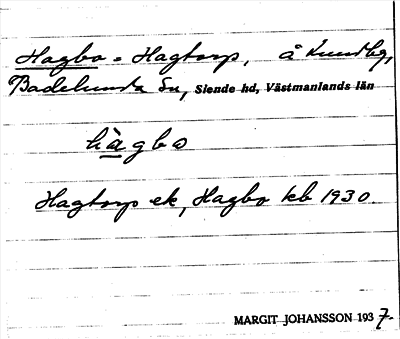 Hagbo = Hagtorp, å Kumlby,
Badelunda sn, Siende hd, Västmanlands län
hàgbo
Hagtorp ek, Hagbo kb 1930.
MARGIT JOHANSSON 1937.